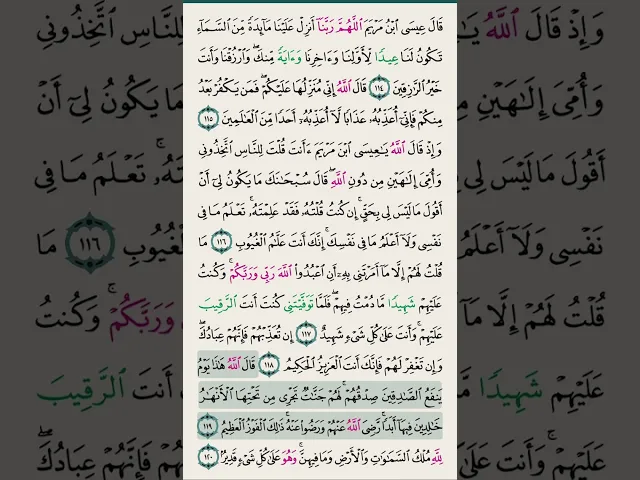 قَالَ عِيسَى ٱبْنُ مَرْيَمَ ٱللَّهُمَّ رَبَّنَآ أَنزِلْ عَلَيْنَا مَآئِدَةً مِّنَ ٱلسَّمَآءِ
تَكُونُ لَنَا عِيدًا لِّأَوَّلِنَا وَءَاخِرِنَا وَءَايَةً مِّنكَ ۖ وَٱرْزُقْنَا وَأَنتَ
خَيْرُ ٱلرَّٰزِقِينَ ١١٤ قَالَ ٱللَّهُ إِنِّي مُنَزِّلُهَا عَلَيْكُمْ ۖ فَمَن يَكْفُرْ بَعْدُ
مِنكُمْ فَإِنِّيٓ أُعَذِّبُهُۥ عَذَابًا لَّآ أُعَذِّبُهُۥٓ أَحَدًا مِّنَ ٱلْعَٰلَمِينَ ١١٥
وَإِذْ قَالَ ٱللَّهُ يَٰعِيسَى ٱبْنَ مَرْيَمَ ءَأَنتَ قُلْتَ لِلنَّاسِ ٱتَّخِذُونِي
وَأُمِّيَ إِلَٰهَيْنِ مِن دُونِ ٱللَّهِ ۖ قَالَ سُبْحَٰنَكَ مَا يَكُونُ لِيٓ أَنْ
أَقُولَ مَا لَيْسَ لِي بِحَقٍّ ۚ إِن كُنتُ قُلْتُهُۥ فَقَدْ عَلِمْتَهُۥ ۚ تَعْلَمُ مَا فِي
نَفْسِي وَلَآ أَعْلَمُ مَا فِي نَفْسِكَ ۚ إِنَّكَ أَنتَ عَلَّٰمُ ٱلْغُيُوبِ ١١٦ مَا
قُلْتُ لَهُمْ إِلَّا مَآ أَمَرْتَنِي بِهِۦٓ أَنِ ٱعْبُدُوا۟ ٱللَّهَ رَبِّي وَرَبَّكُمْ ۚ وَكُنتُ
عَلَيْهِمْ شَهِيدًا مَّا دُمْتُ فِيهِمْ ۖ فَلَمَّا تَوَفَّيْتَنِي كُنتَ أَنتَ ٱلرَّقِيبَ
عَلَيْهِمْ ۚ وَأَنتَ عَلَىٰ كُلِّ شَيْءٍ شَهِيدٌ ١١٧ إِن تُعَذِّبْهُمْ فَإِنَّهُمْ عِبَادُكَ ۖ
وَإِن تَغْفِرْ لَهُمْ فَإِنَّكَ أَنتَ ٱلْعَزِيزُ ٱلْحَكِيمُ ١١٨ قَالَ ٱللَّهُ هَٰذَا يَوْمُ
يَنفَعُ ٱلصَّٰدِقِينَ صِدْقُهُمْ ۚ لَهُمْ جَنَّٰتٌ تَجْرِي مِن تَحْتِهَا ٱلْأَنْهَٰرُ
خَٰلِدِينَ فِيهَآ أَبَدًا ۚ رَّضِيَ ٱللَّهُ عَنْهُمْ وَرَضُوا۟ عَنْهُ ۚ ذَٰلِكَ ٱلْفَوْزُ ٱلْعَظِيمُ ١١٩
لِلَّهِ مُلْكُ ٱلسَّمَٰوَٰتِ وَٱلْأَرْضِ وَمَا فِيهِنَّ ۚ وَهُوَ عَلَىٰ كُلِّ شَيْءٍ قَدِيرٌ ١٢٠